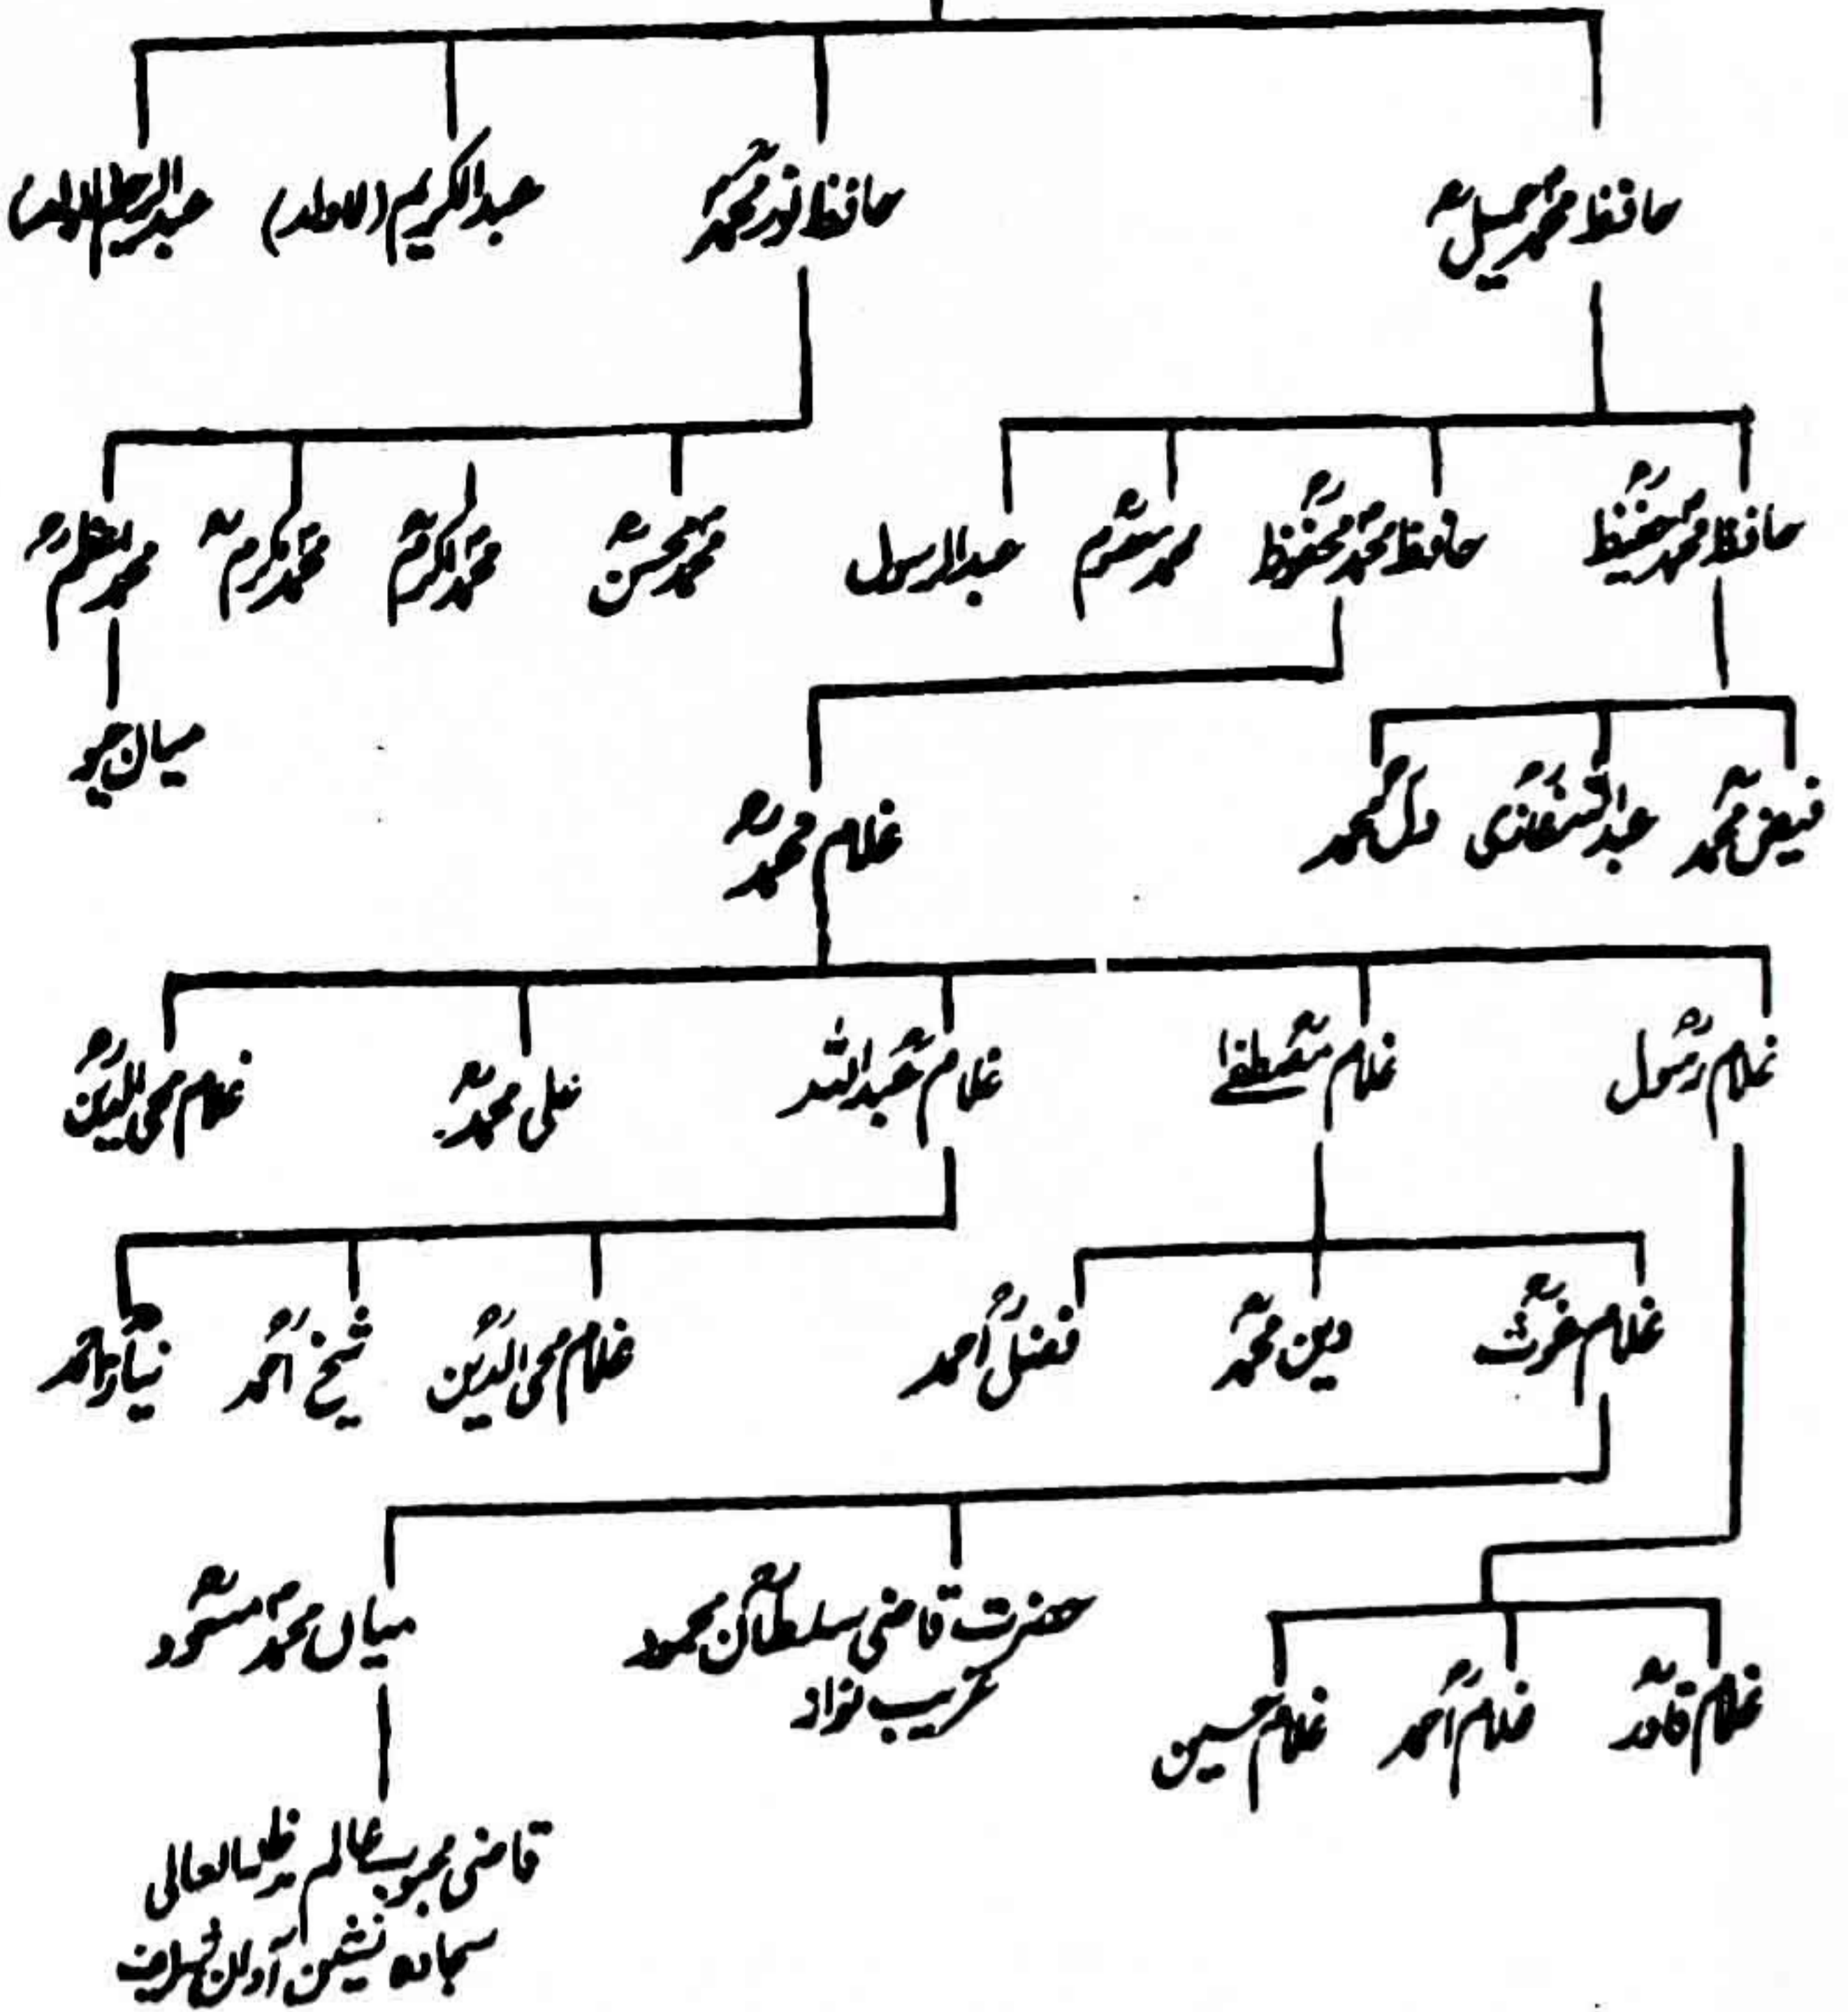 حافظ محمد جمیلؒ
حافظ نور محمدؒ
عبدالکریم (لاولد)
عبدالرحیم (لاولد)
حافظ محمد حفیظؒ
حافظ محمد محفوظؒ
محمد معصومؒ
عبدالرسول
محمد محسنؒ
محمد اکرمؒ
محمد مکرمؒ
محمد اعظمؒ
میاں جیو
فیض محمدؒ
عبداللہ غازیؒ
گل محمدؒ
غلام محمدؒ
غلام رسولؒ
غلام مصطفےٰؒ
غلام عبداللہؒ
علی محمدؒ
غلام محی الدینؒ
غلام غوثؒ
دین محمدؒ
فضل احمدؒ
غلام محی الدینؒ
شیخ احمدؒ
نیاز احمدؒ
حضرت قاضی سلطان محمودؒ
غریب نواز
میاں محمد مسعودؒ
غلام قادرؒ
غلام احمدؒ
غلام حسین
قاضی محبوب عالم مدظلہ العالی
سجادہ نشین آوان شریف